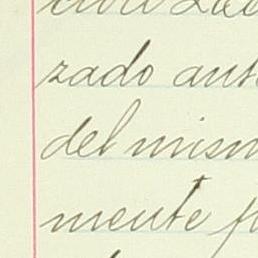 zado ant
del mism
mente f